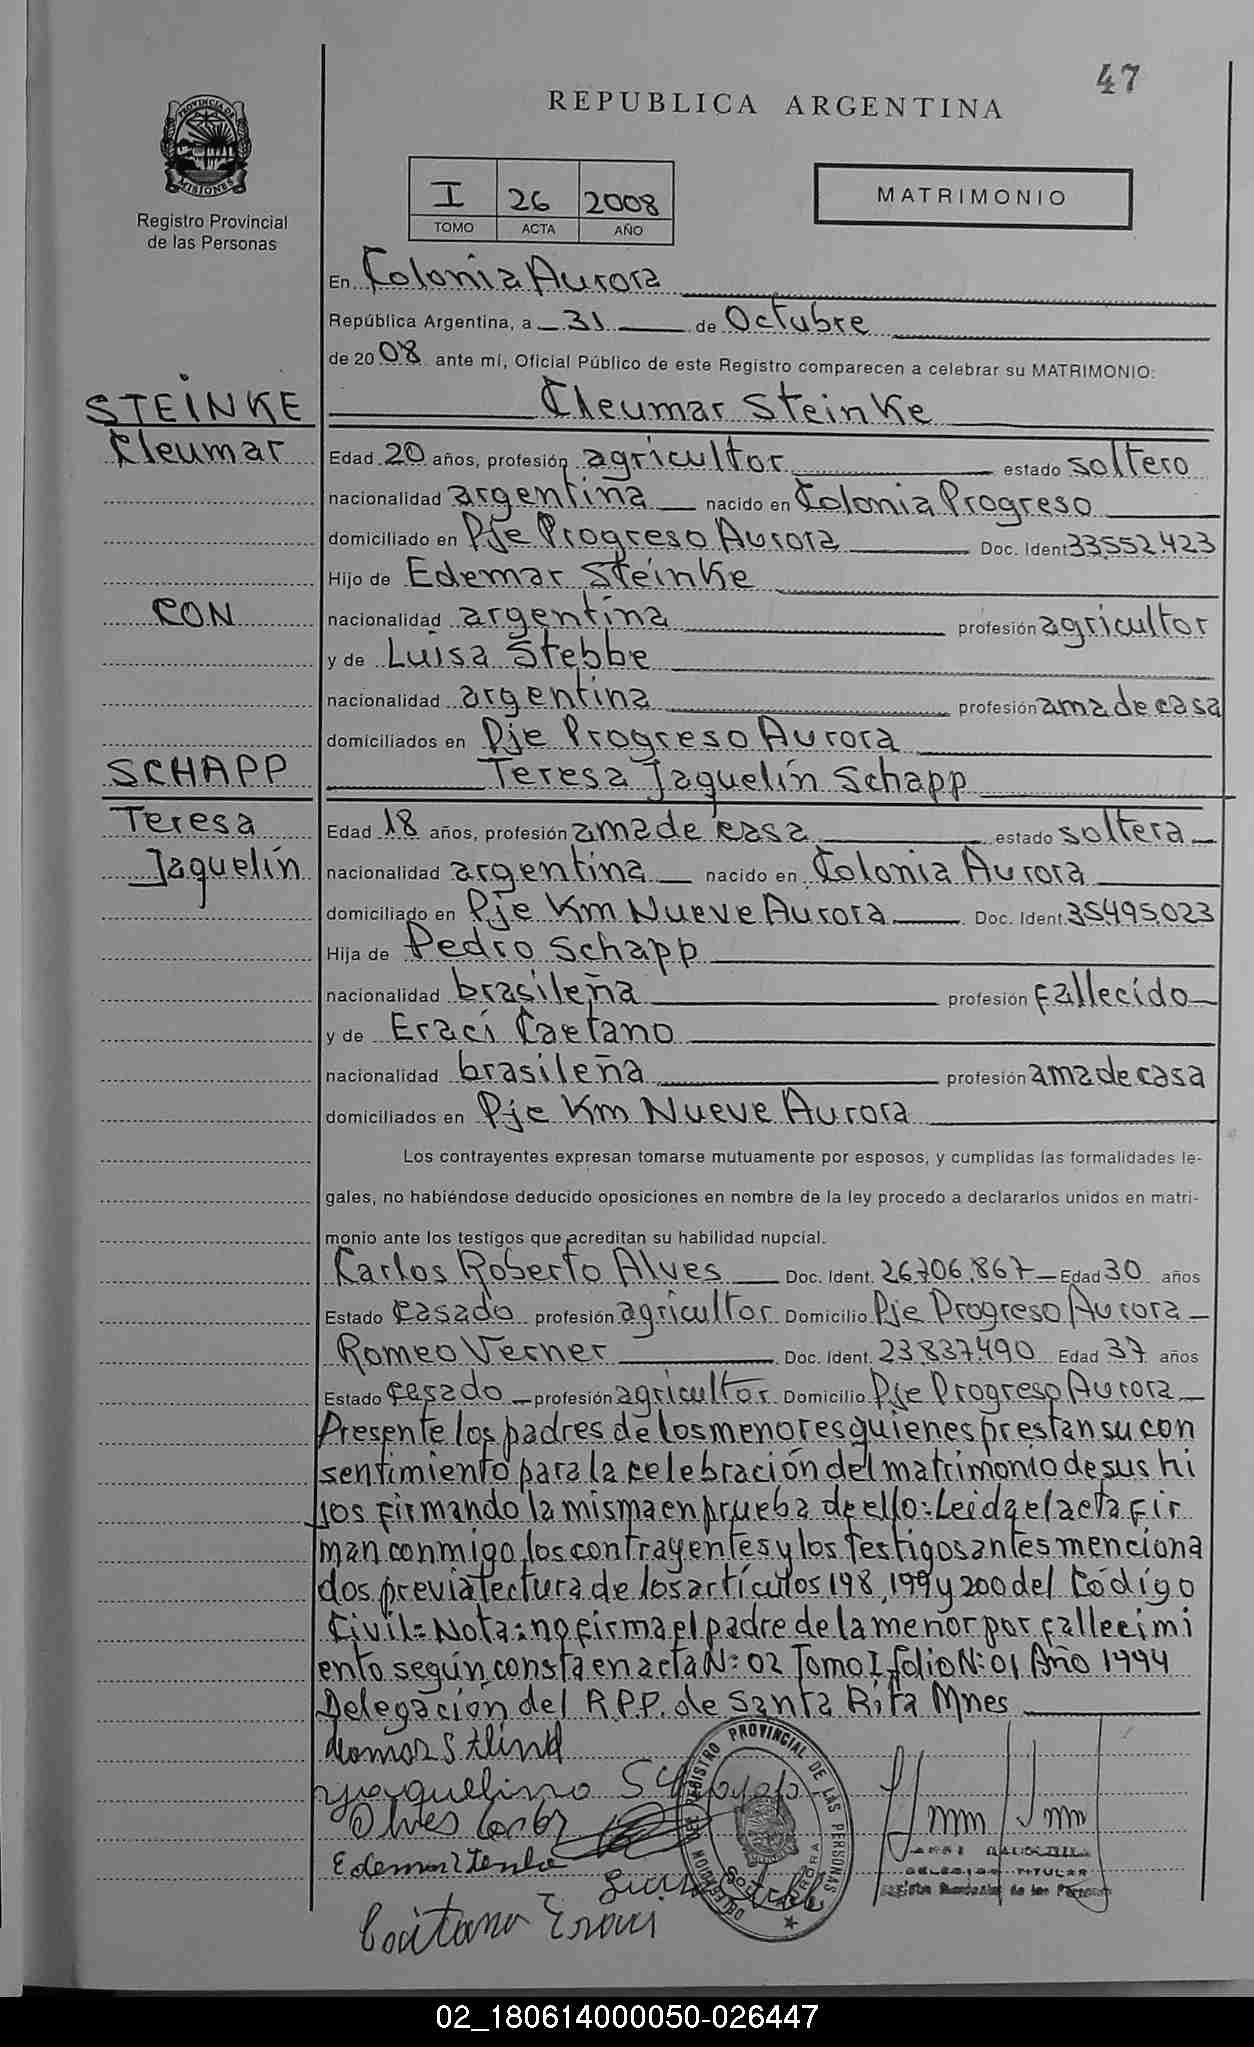 47
REPUBLICA ARGENTINA
PROVINCIA DE
MISIONES
Registro Provincial
de las Personas
I 26 2008
TOMO ACTA AÑO
MATRIMONIO
En Colonia Aurora
República Argentina, a 31 de Octubre
de 2008 ante mí, Oficial Público de este Registro comparecen a celebrar su MATRIMONIO:
STEINKE Cleumar Steinke
Cleumar Edad 20 años, profesión agricultor estado soltero
nacionalidad argentina nacido en Colonia Progreso
domiciliado en Pje Progreso Aurora Doc. Ident 33.552.423
Hijo de Edemar Steinke
CON nacionalidad argentina profesión agricultor
y de Luisa Stebbe
nacionalidad argentina profesión ama de casa
domiciliados en Pje Progreso Aurora
SCHAPP Teresa Jaquelín Schapp
Teresa Edad 18 años, profesión ama de casa estado soltera
Jaquelín nacionalidad argentina nacido en Colonia Aurora
domiciliado en Pje Km Nueve Aurora Doc. Ident. 35495.023
Hija de Pedro Schapp
nacionalidad brasileña profesión fallecido
y de Eraci Caetano
nacionalidad brasileña profesión ama de casa
domiciliados en Pje Km Nueve Aurora
Los contrayentes expresan tomarse mutuamente por esposos, y cumplidas las formalidades le-
gales, no habiéndose deducido oposiciones en nombre de la ley procedo a declararlos unidos en matri-
monio ante los testigos que acreditan su habilidad nupcial.
Carlos Roberto Alves Doc. Ident. 26.706.867 Edad 30 años
Estado casado profesión agricultor Domicilio Pje Progreso Aurora
Romeo Verner Doc. Ident. 23.837.490 Edad 37 años
Estado casado profesión agricultor Domicilio Pje Progreso Aurora
Presente los padres de los menores quienes prestan su con
sentimiento para la celebración del matrimonio de sus hi
jos firmando la misma en prueba de ello: Leida el acta fir
man conmigo los contrayentes y los testigos antes menciona
dos previa lectura de los artículos 198, 199 y 200 del Código
Civil= Nota: no firma el padre de la menor por fallecimi
ento según consta en acta N: 02 Tomo I folio N: 01 Año 1994
Delegación del R.P.P. de Santa Rita Mnes
Alves
Edemar Steinke
Caitano Eraci
REGISTRO PROVINCIAL DE LAS PERSONAS
DELEGACION
DELEGADO TITULAR
Registro Provincial de las Personas
02_180614000050-026447